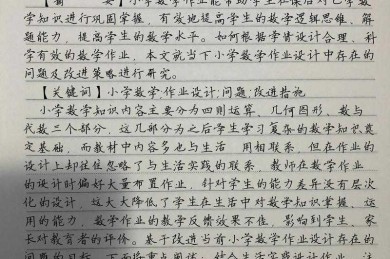 【摘　要】小学数学作业能帮助学生在课后对已学数
学知识进行巩固掌握,有效地提高学生的数学逻辑思维、解
题能力,提高学生的数学水平。如何根据学情设计合理、科
学有效的数学作业,本文就当下小学数学作业设计中存在的
问题及改进策略进行研究。
【关键词】小学数学;作业设计;问题;改进措施
小学数学知识内容主要分为四则运算,几何图形、数与
代数三个部分,这几部分为之后学生学习复杂的数学知识奠
定基础,而教材中内容多也与生活 用相联系,但在作业的
设计上却往往忽略了与生活实践的联系,教师在数学作业
的设计时偏好大量布置作业,针对学生的能力差异没有层次
化的设计,这大大降低了学生在生活中对数学知识掌握、运
用的能力,数学作业的教学反馈效果不佳,影响到学生、家
长对教育者的评价。基于改进当前小学数学作业设计存在的